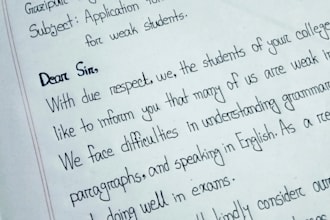 Gazipur
Subject: Application
for weak students.
Dear Sir,
With due respect, we, the students of your college
like to inform you that many of us are weak in
We face difficulties in understanding grammar
paragraphs, and speaking in English. As a
doing well in exams.
kindly consider our